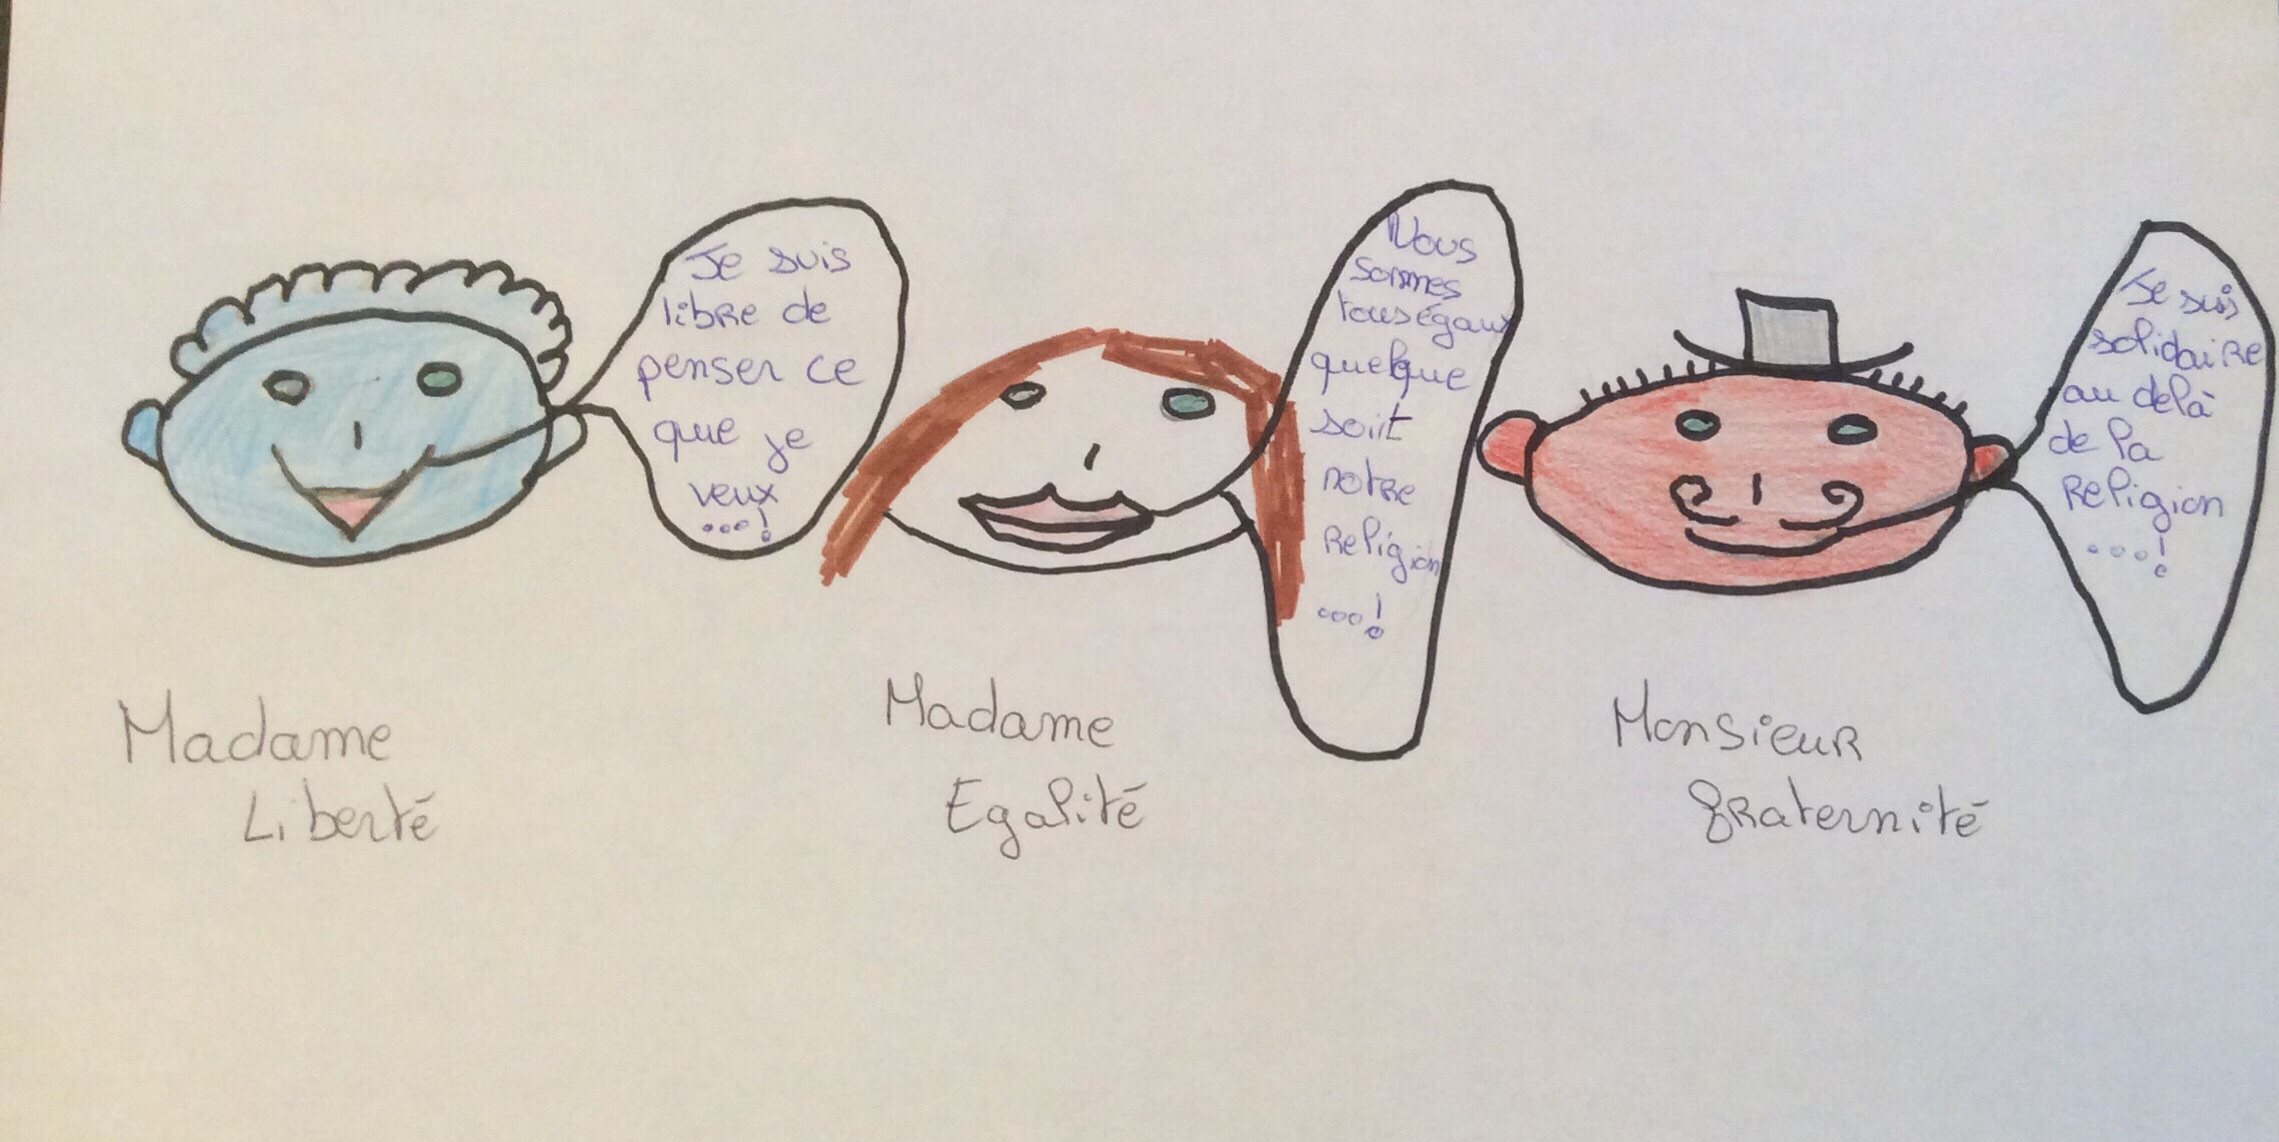 Je suis
libre de
penser ce
que je
veux
...!
Nous
sommes
tous égaux
quelque
soiit
notre
religion
...!
Je suis
solidaire
au delà
de la
religion
...!
Madame
Liberté
Madame
Egalité
Monsieur
fraternité